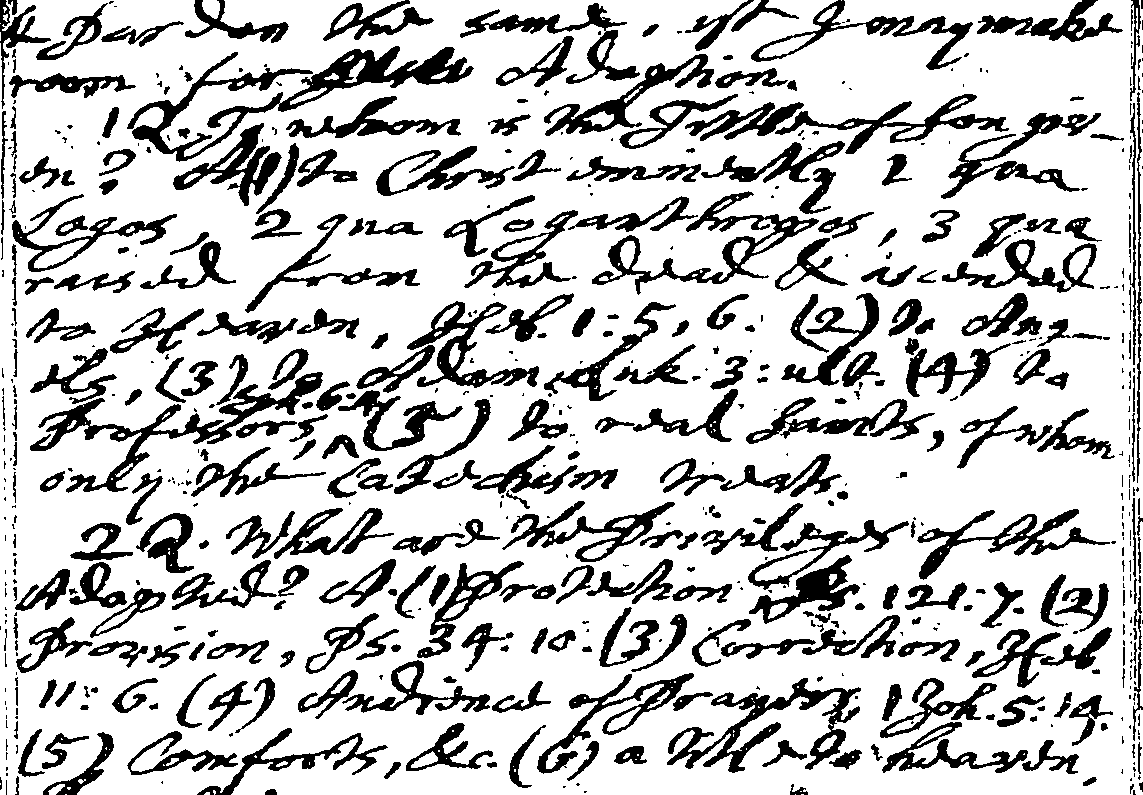 & Pardon the same, yt I may make
room for Adoption.
1 Q. To whom is the Tittle of Son giv-
en? A. (1) to Christ eminently 1 qua
Logos, 2 qua Loganthropos, 3 qua
raised from the dead & ascended
to Heaven, Heb. 1:5,6. (2) to Ang-
els, (3) to Adam, Luk. 3: ult. (4) to
Professors, (5) to real Saints, of whom
only the Catechism treats.
2 Q. What are the Privileges of the
Adopted? A. (1) Protection Ps. 121:7. (2)
Provision, Ps. 34:10. (3) Correction, Heb.
11:6. (4) Audience of Prayers, 1 Joh. 5:14.
(5) Comforts, &c. (6) a title to heaven,